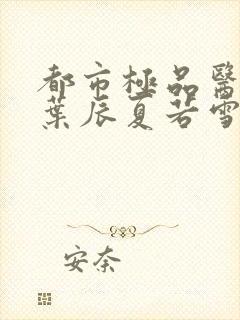 都市極品醫
葉辰夏若雪
安奈